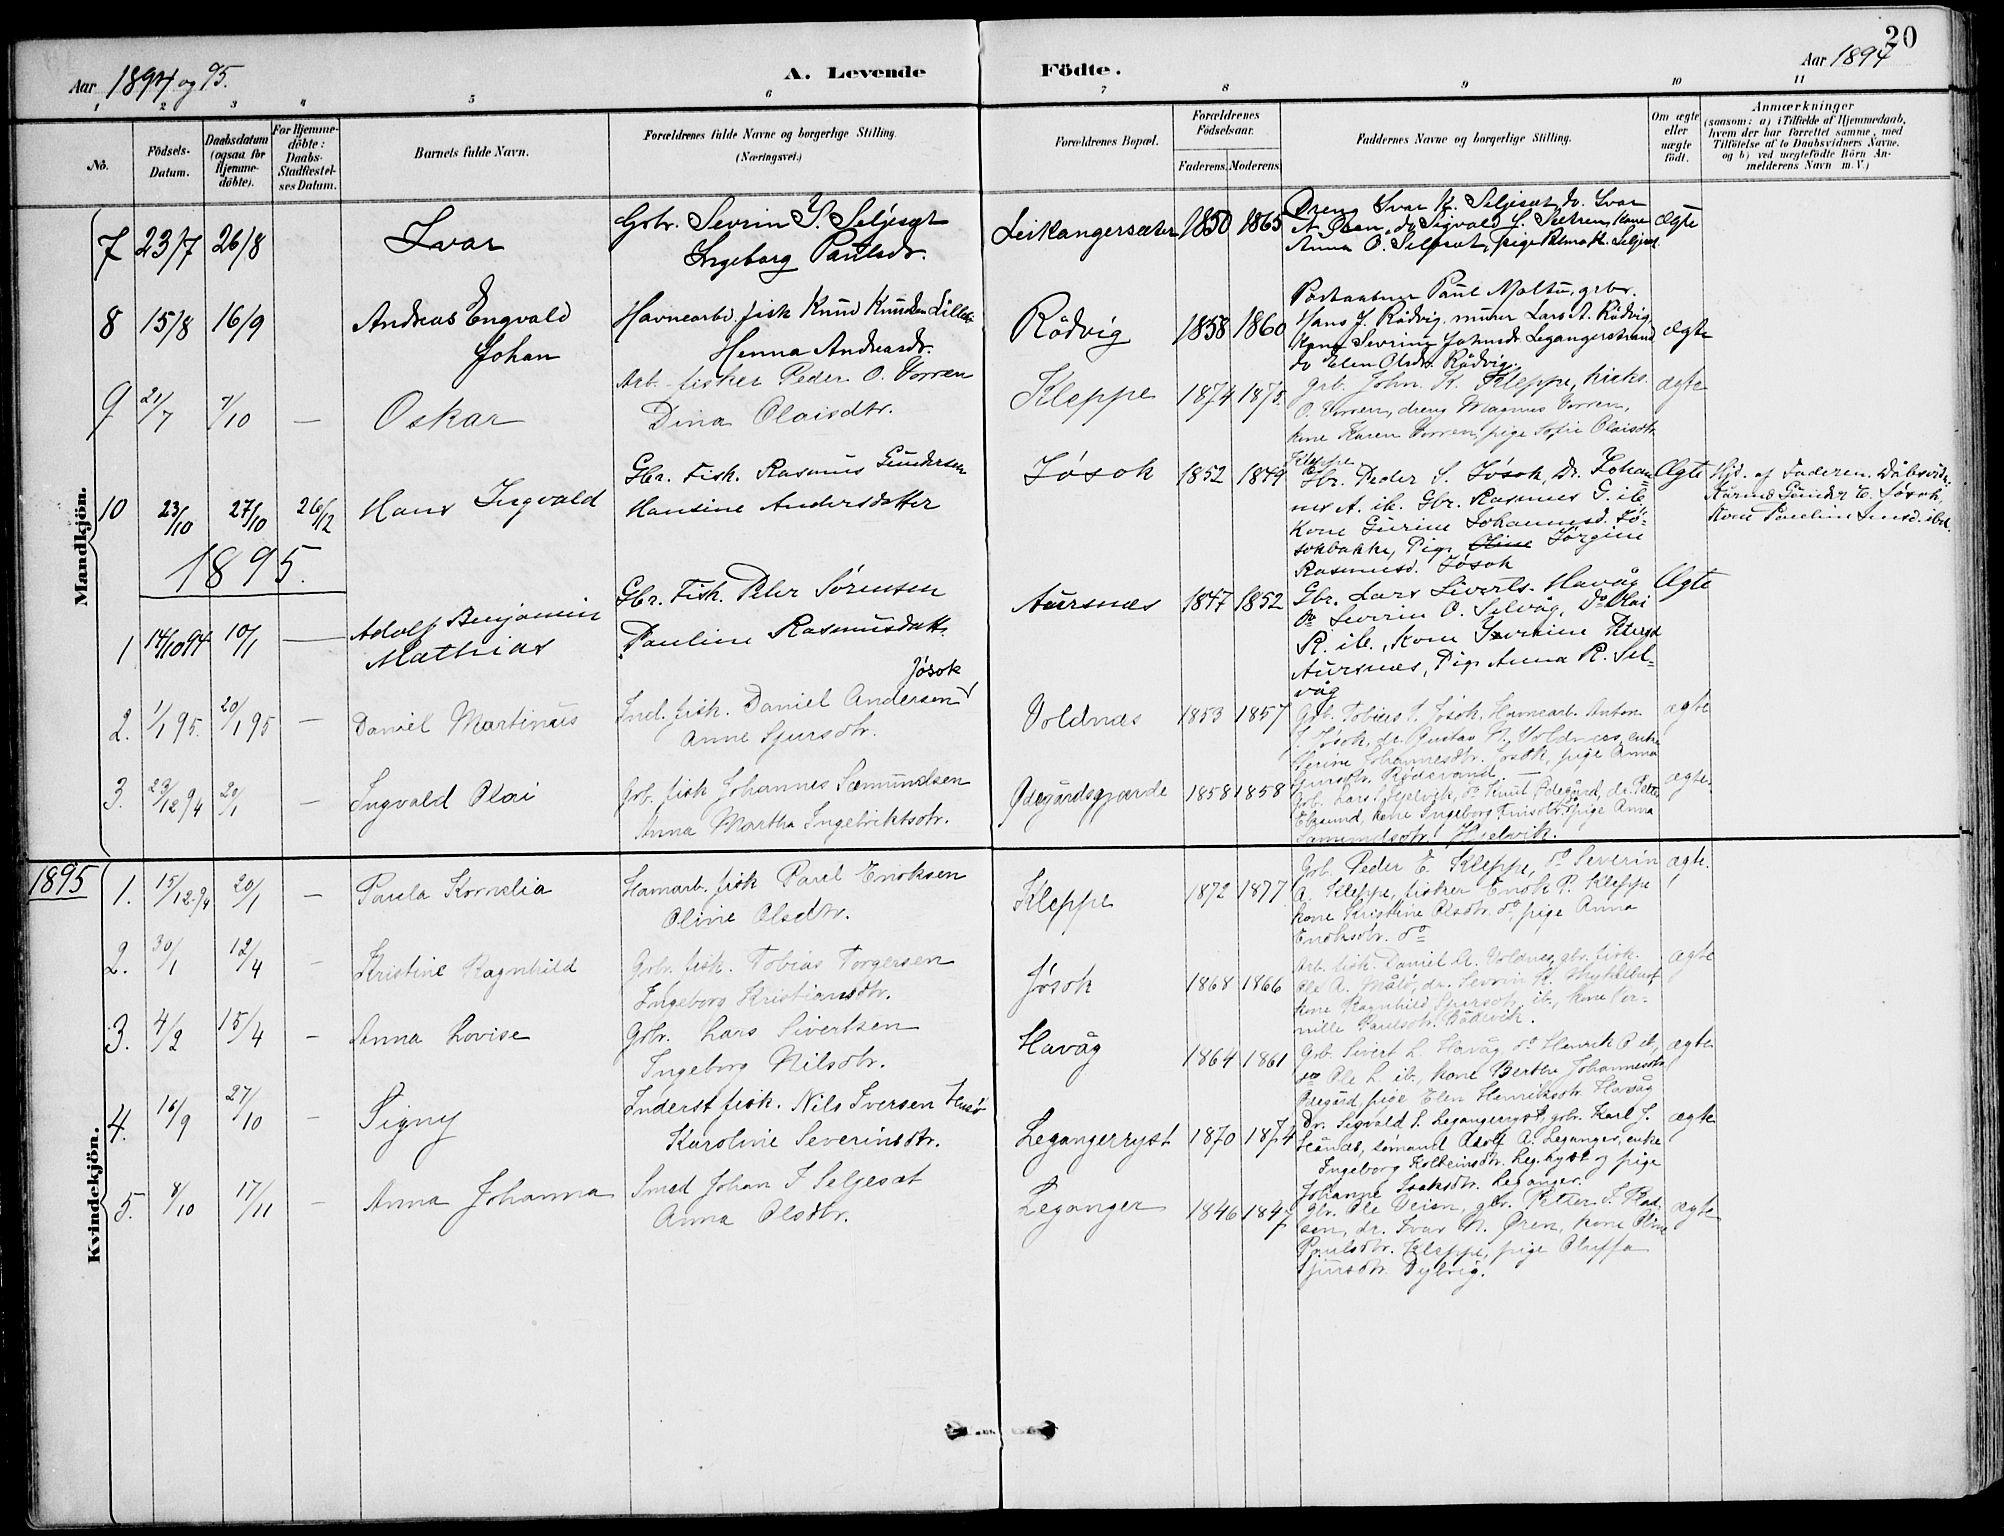 20
Aar 1894 og 95.
A. Levende
Födte.
Aar 1894
1 2 3 4 5 6 7 8 9 10 11
No.
Födsels-
Datum.
Daabsdatum
(ogsaa for
Hjemme-
döbte).
For Hjemme-
döbte:
Daabs-
Stadfæstel-
ses Datum.
Barnets fulde Navn.
Forældrenes fulde Navne og borgerlige Stilling.
(Næringsvei.)
Forældrenes Bopæl.
Forældrenes
Födselsaar.
Faderens. Moderens.
Faddernes Navne og borgerlige Stilling.
Om ægte
eller
uægte
födt.
Anmærkninger
(saasom: a) i Tilfælde af Hjemmedaab,
hvem der har forrettet samme, med
Tilföielse af to Daabsvidners Navne.
og b) ved uægtefödte Börn An-
melderens Navn m.V.)
Mandkjön.
7 23/7 26/8 Ivar
Gbr. Sevrin S. Seljesæt
Ingeborg Paulsdr.
Leikangersæter 1850 1865
Dreng Ivar K. Seljesæt, do. Ivar
do Sigvald S. Sætren, kone
Anna O. Seljesæt, pige
ægte
8 15/8 16/9 Andreas Engvald
Johan
Havnearb. fisk Knud Knudsen
Henna Andreasdr.
Rödvig 1858 1860
Postaabner Paul Moltu, grbr.
Hans J. Rödvig, murer Lars A. Rödvig,
kone Sevrine Johnsdr. Legangerstrand
do Elen Olsdr. Rödvig.
ægte
9 21/7 7/10 — Oskar
Arb. fisker Peder O. Vorren
Dina Olaisdtr.
Kleppe 1874 1875.
grb. John K. Kleppe, kirks.
O. Vorren, dreng Magnus Vorren,
kone Karen Vorren, pige Sofie Olaisdtr.
Kleppe
ægte
10 23/10 27/10 26/12 Hans Ingvald
Gbr. Fisk. Rasmus Gundersen
Hansine Andersdatter
Jøsok 1852 1849
Gbr. Peder S. Jøsok, Dr. Johan-
nes A. ib. Gbr. Rasmus G. ib
Kone Gurine Johannesd. Jø-
sokbakke, Pige Oline Jørgine
Rasmusd. Jøsok
Ægte
Hjd. af Faderen. Daabsvidn.
Gunder E. Jøsok,
Kone Pauline
1895.
1 14/10 94 10/1 — Adolf Benjamin
Mathias
Gbr. Fisk. Peter Sørensen
Pauline Rasmusdatt.
Aursnæs 1847 1852
Gbr. Lars Siverts. Havåg
Do Severin O. Selvåg, Do Olai
R. ib., Kone Severine Petersd
Aursnæs, Pige Anna R. Sel-
våg
Ægte
2. 1/1 95. 20/1 95 — Daniel Martinus
Jøsok
Ind. fisk. Daniel Andersen
Anne Sjursdtr.
Voldnæs 1853 1857
Grb. Tobias T. Jøsok, Havnearb. Anton
J. Jøsok, dr. Gustav N. Voldnæs, enke
Johannesdtr. Jøsok, pige Anna
Sjursdtr. Rødsvand
ægte
3. 29/12 94 20/1 — Ingvald Olai
Grb. fisk Johannes Sæmundsen
Anna Martha Ingebriktsdtr.
Ødegårdsgjærde 1858 1858
Grb. Lars S. Hjelvik, do Knut Ødegård, dr. Petter
kone Ingeborg pige Anna
Sæmundsdtr. Hjelvik.
ægte.
Kvindekjön.
1895
1. 15/12-94 20/1 — Paula Kornelia
Havnarb. fisk Paul Enoksen
Oline Olsdtr.
Kleppe 1872 1877
Grb. Peder E. Kleppe, do Severin
A. Kleppe, fisker Enok P. Kleppe
kone Kristine Olsdtr. do, pige Anna
Enoksdtr. do
ægte.
2. 30/1 12/4 — Kristine Ragnhild
Grb. fisk. Tobias Torgersen
Ingeborg Kristiansdtr.
Jøsok 1868 1866
Arb. fisk. Daniel A. Voldnes, gbr. fisk.
Ole A. Måló, dr. Sevrin K. Myklebust,
kone Ragnhild Sjursdtr. ib., kone Per-
nille Paulsdtr. Bödevik.
ægte
3. 4/2 15/4 — Anna Lovise
Grb. Lars Sivertsen
Ingeborg Nilsdtr.
Havåg 1864 1861
Grb. Sivert L. Havåg, do Henrik P. ib,
do Ole L. ib., kone Berthe Johannesdtr.
Ødegård, pige Elen Henriksdtr. Havåg
ægte
4. 16/9 27/10 — Signy
Inderst fisk. Nils Iversen Husø
Karoline Severinsdtr.
Legangerryst 1870 1874
Dr. Sigvald S. Legangerryst, grbr. Karl J.
sømand Adolf A. Leganger, enke
Ingeborg Kolbeinsdtr. Leg.ryst og pige
Johanne Isaksdtr. Leganger.
ægte
5. 8/10 17/11 — Anna Johanna
Smed Johan J Seljesæt
Anna Olsdtr.
Leganger 1846 1847
Gbr. Ole Veien, gbr. Petter J. Rad-
sen, dr. Ivar N. Øren, kone Oline
Paulsdtr. Kleppe, pige Oluffa
Sjursdtr. Dybvig.
ægte